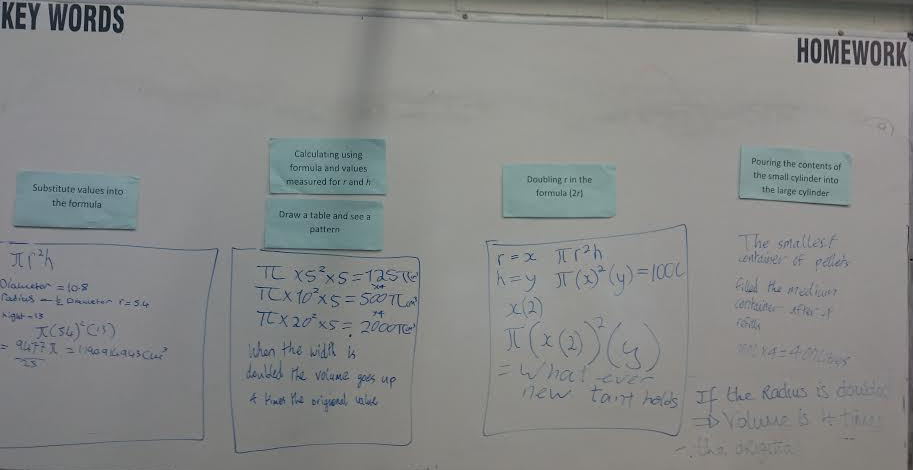 KEY WORDS
HOMEWORK
Substitute values into
the formula
πr²h
Diameter = 10.8
radius = ½ Diameter r = 5.4
π(5.4)²(13)
= 9477π
25
Calculating using
formula and values
measured for r and h
Draw a table and see a
pattern
π × 5² × 5 = 125π
×4
π × 10² × 5 = 500π cm³
×4
π × 20² × 5 = 2000π
When the width is
doubled the volume goes up
4 times the origional value
Doubling r in the
formula (2r)
r = x πr²h
h = y π(x)²(y) = 100L
x(2)
π(x(2))²(y)
= What ever
new tant holds
Pouring the contents of
the small cylinder into
the large cylinder
The smallest
container of pellets
filled the medium
container after 4
refills
If the Radius is doubled
⇒ Volume is 4 times
the